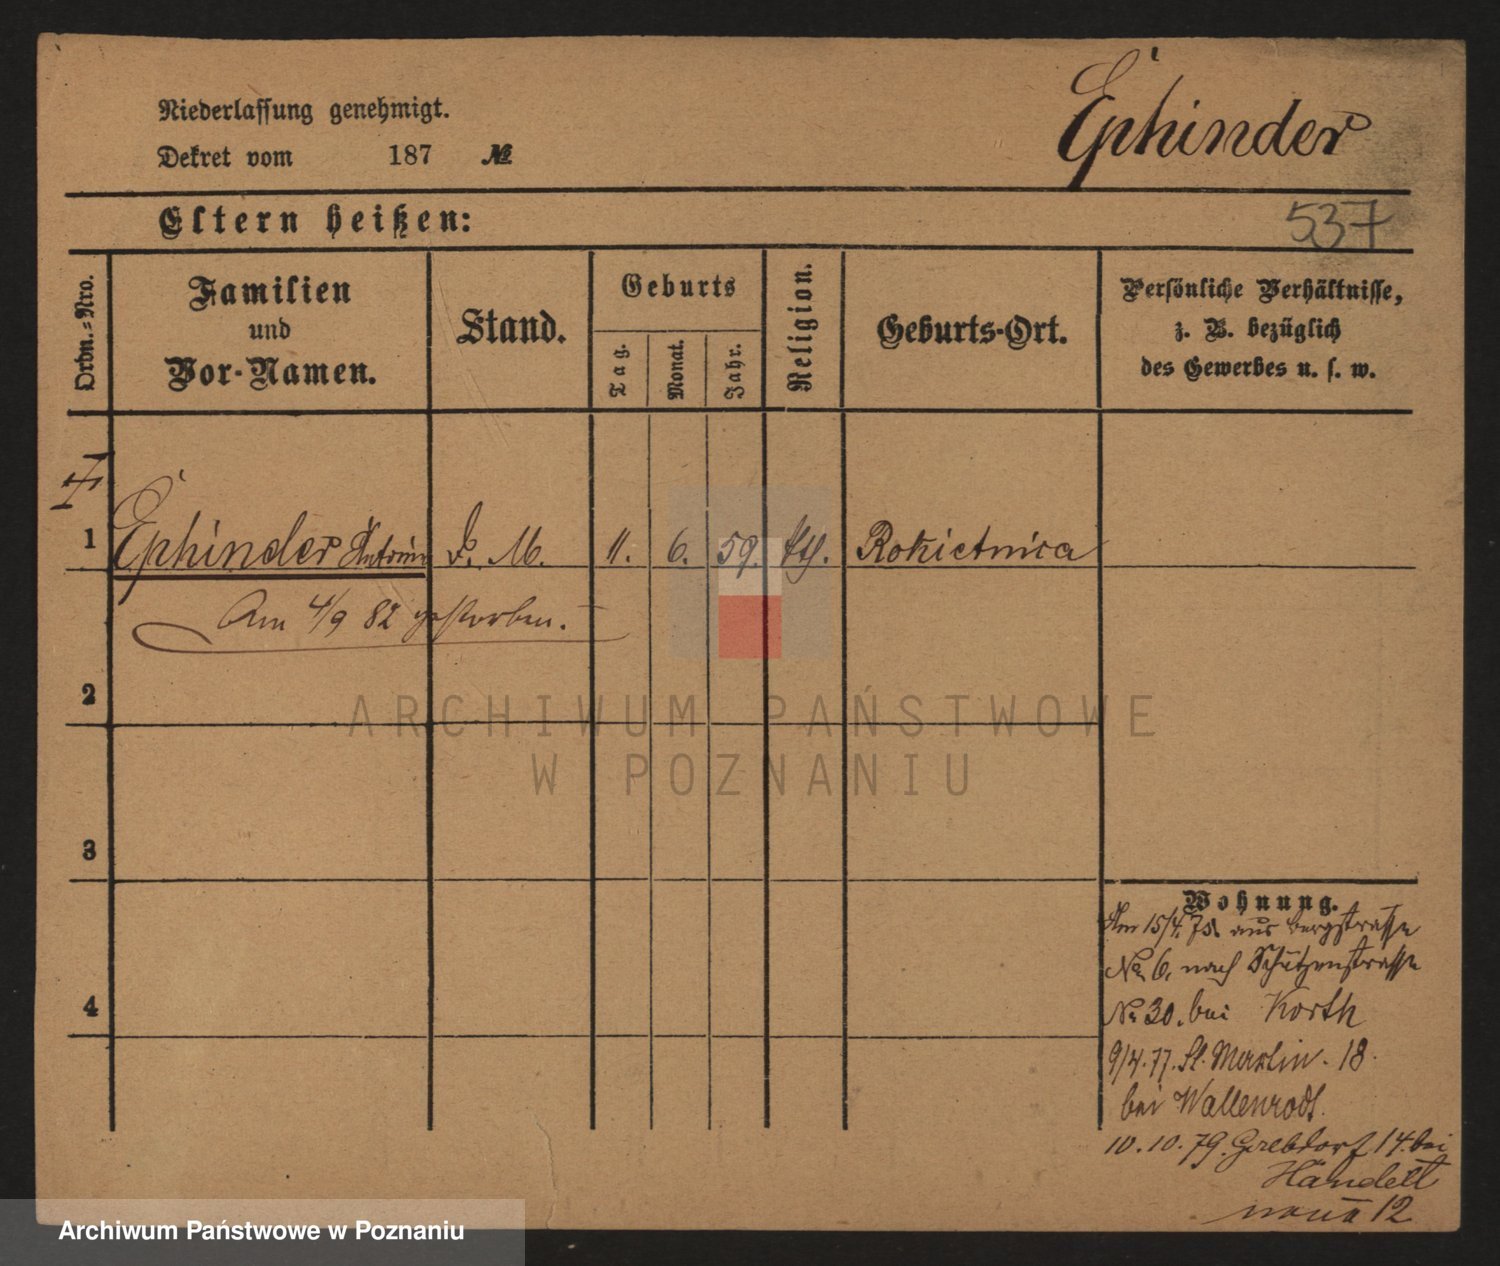 Niederlassung genehmigt.
Dekret vom 187 №
Ephinder
Eltern heißen:
537
Ordn.-Nro.
Familien
und
Vor-Namen.
Stand.
Geburts
Tag.
Monat.
Jahr.
Religion.
Geburts-Ort.
Persönliche Verhältnisse,
z. B. bezüglich
des Gewerbes u. s. w.
1
Ephinder D. M. 11. 6. 59. kth. Rokietnica
Am 4/9 82 gestorben.
2
3
4
Wohnung.
Am 15/4. 75. aus Bergstrasse
No 6. nach Schützenstrasse
No 30. bei Korth
9/4. 77. St. Martin. 18.
bei Wallenrodt.
10. 10. 79. 14. bei
Händelt
12
ARCHIWUM PAŃSTWOWE
W POZNANIU
Archiwum Państwowe w Poznaniu